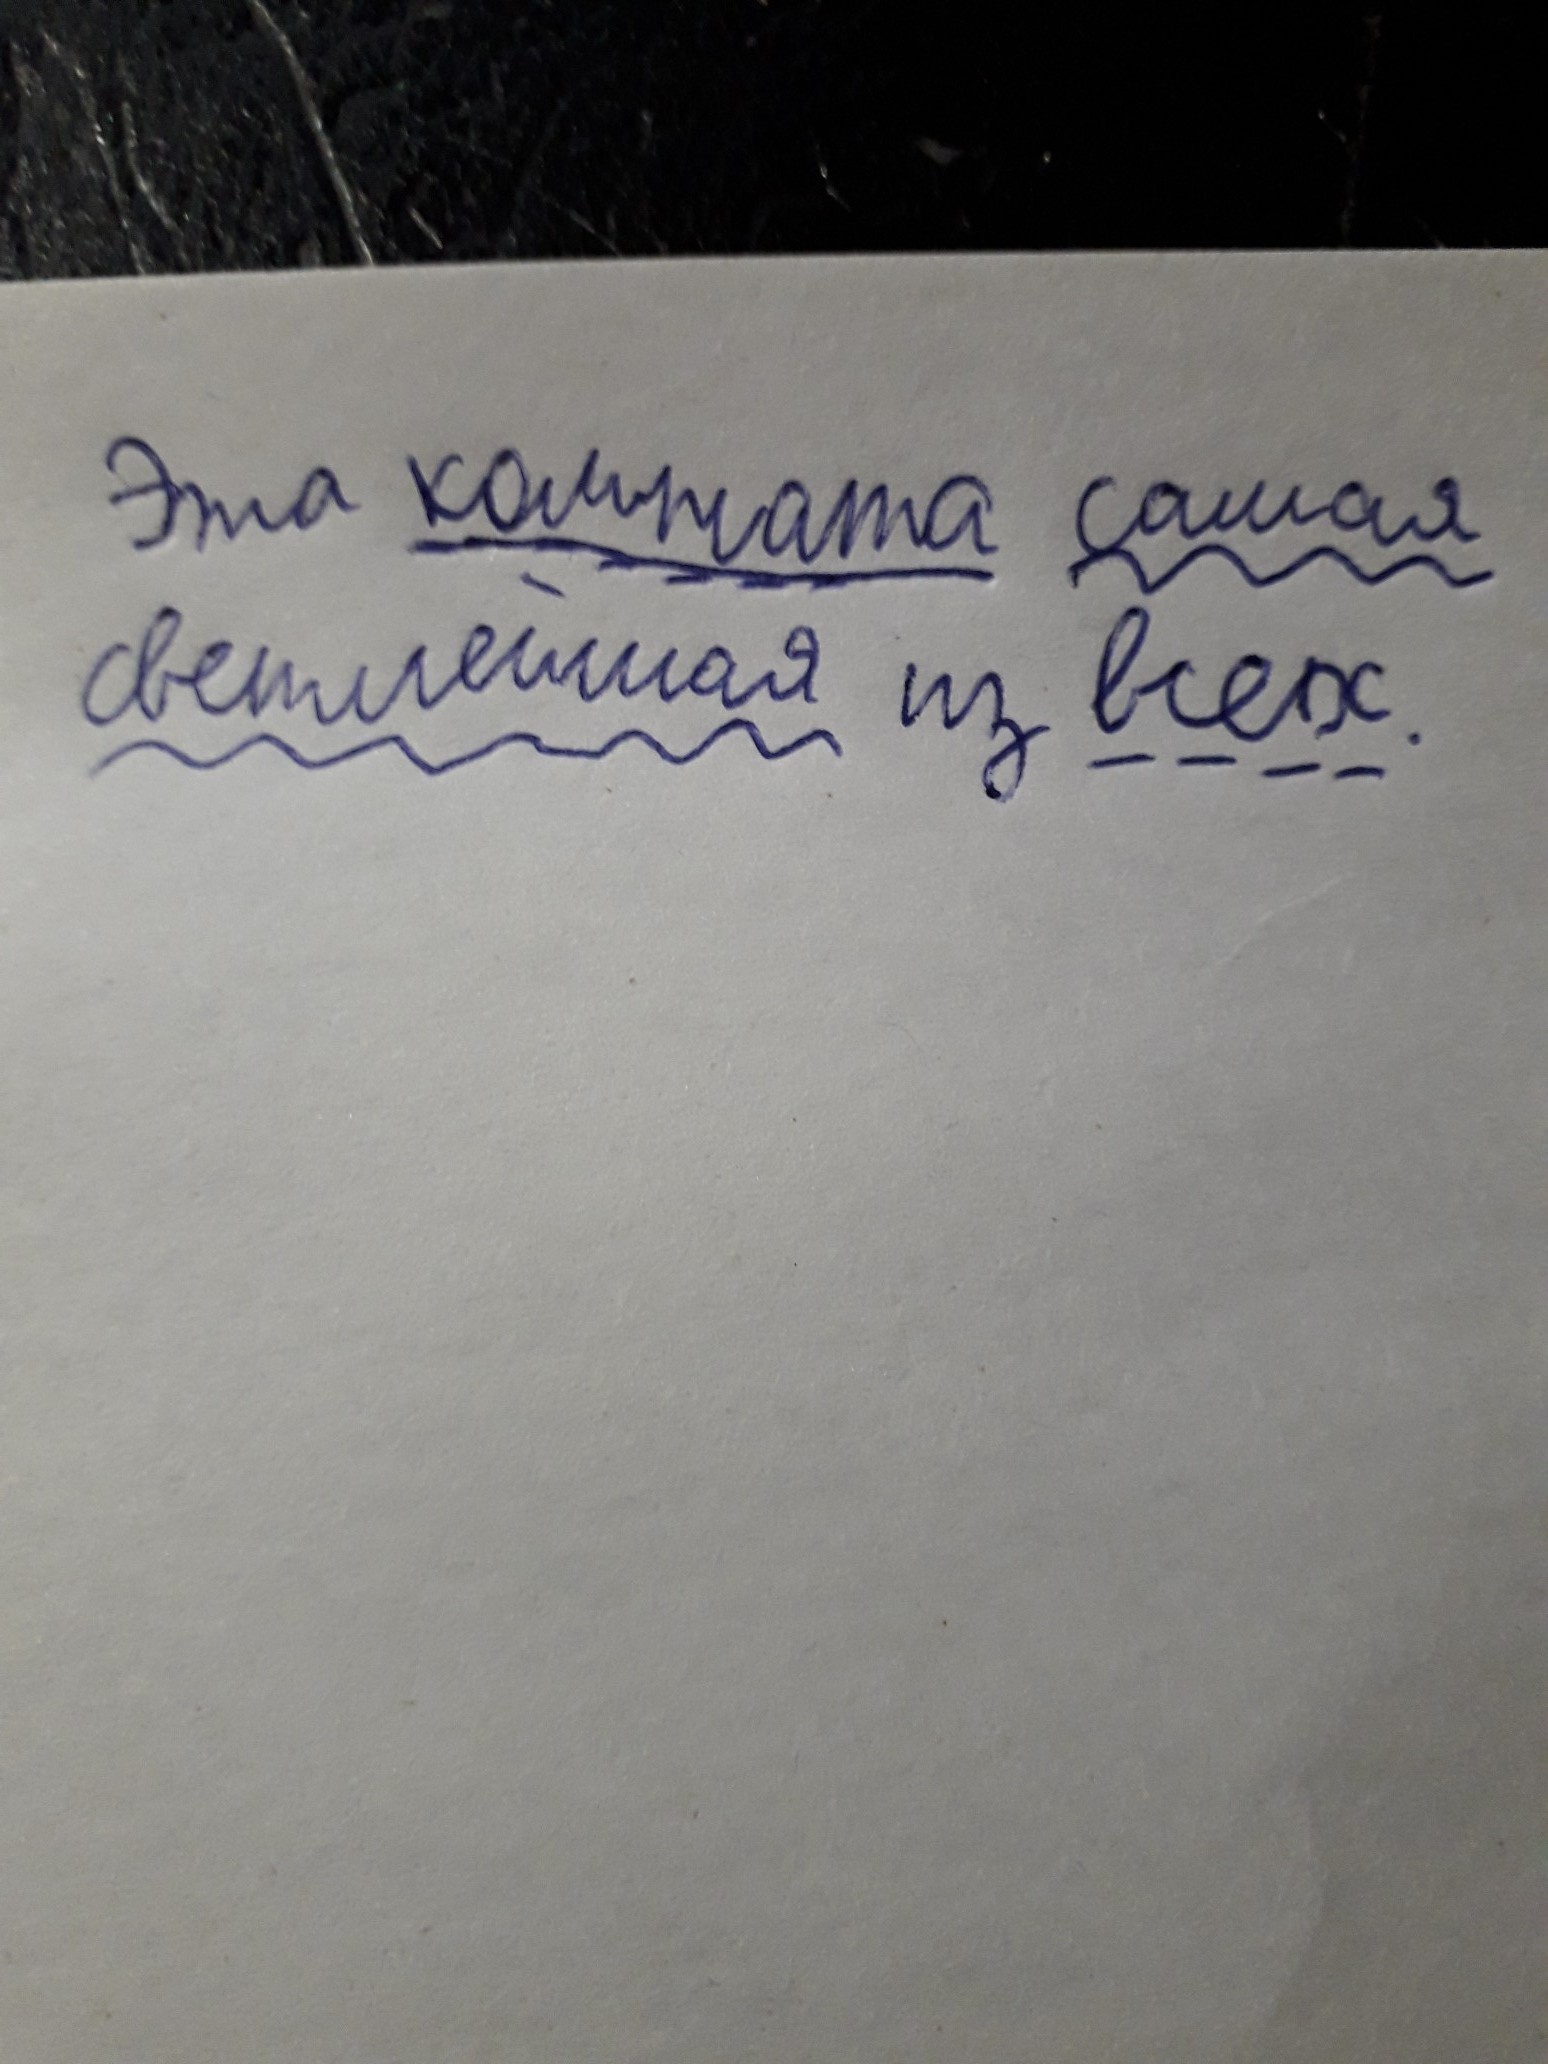 Эта комната самая
светлейшая из всех.